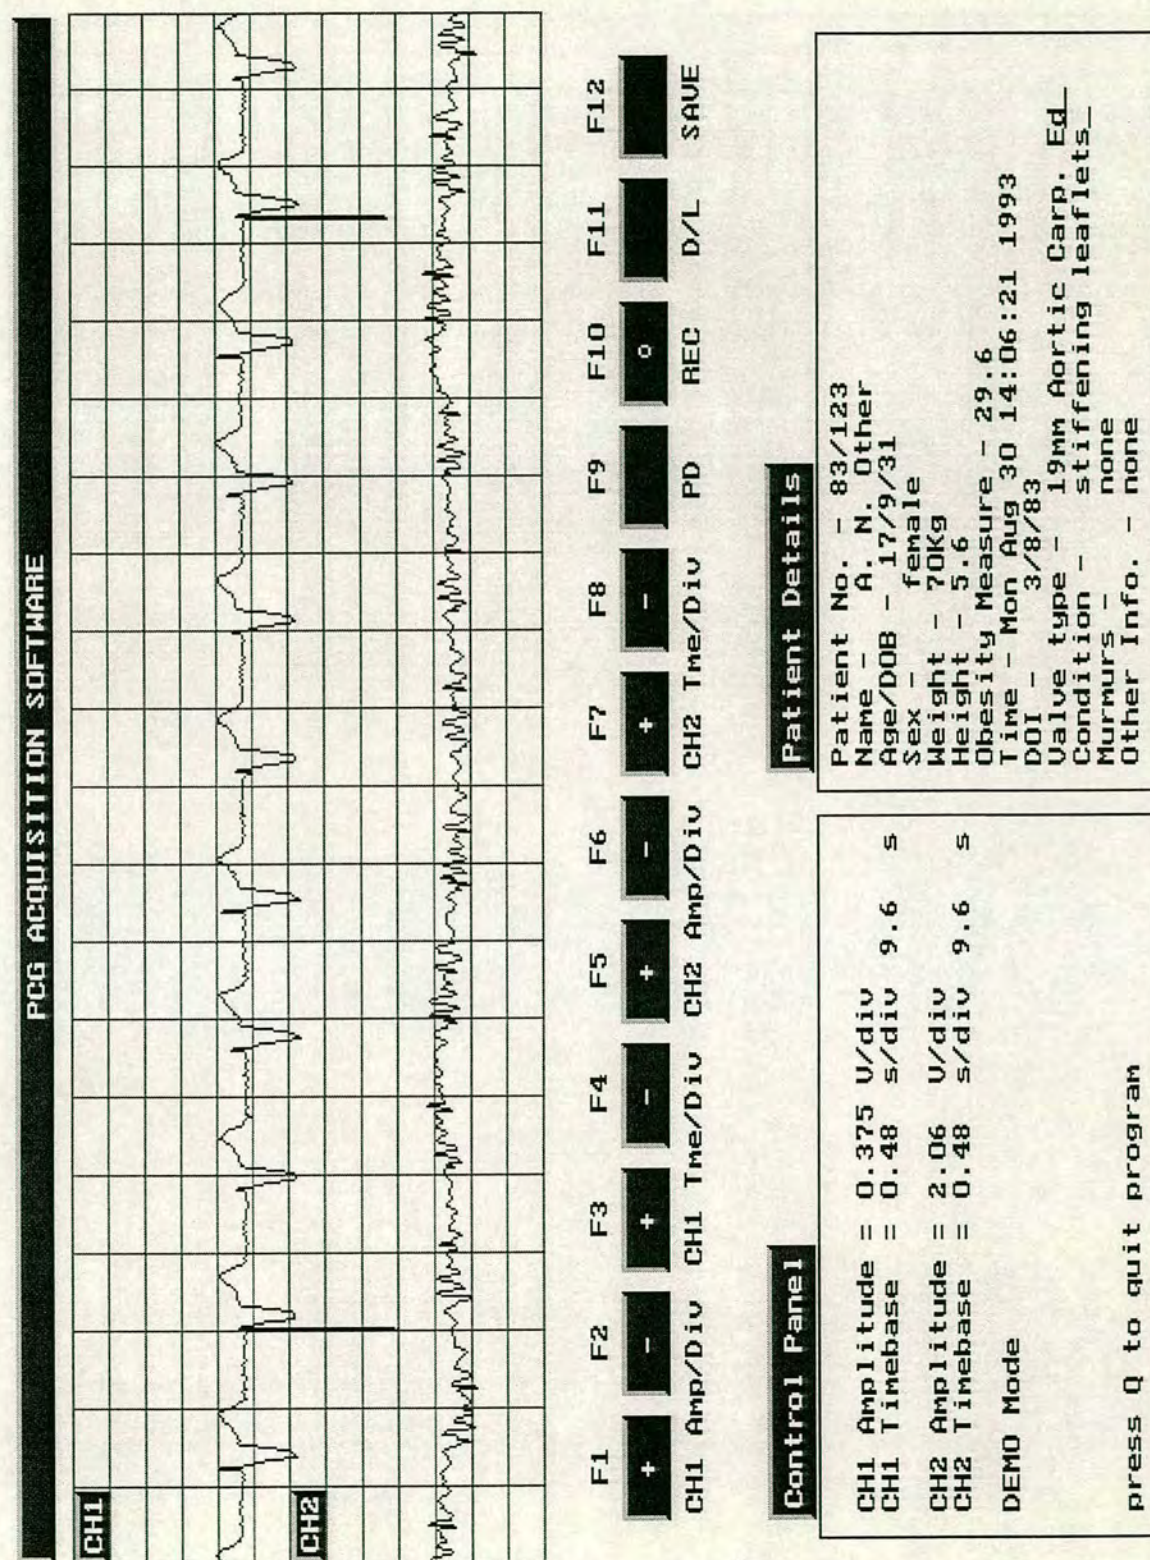 PCG ACQUISITION SOFTWARE
CH1
CH2
F1 F2 F3 F4 F5 F6 F7 F8 F9 F10 F11 F12
+ - + - + - + - o
CH1 Amp/Div CH1 Tme/Div CH2 Amp/Div CH2 Tme/Div PD REC D/L SAVE
Control Panel
CH1 Amplitude = 0.375 V/div
CH1 Timebase = 0.48 s/div 9.6 s
CH2 Amplitude = 2.06 V/div
CH2 Timebase = 0.48 s/div 9.6 s
DEMO Mode
press Q to quit program
Patient Details
Patient No. - 83/123
Name - A. N. Other
Age/DOB - 17/9/31
Sex - female
Weight - 70Kg
Height - 5.6
Obesity Measure - 29.6
Time - Mon Aug 30 14:06:21 1993
DOI - 3/8/83
Valve type - 19mm Aortic Carp. Ed_
Condition - stiffening leaflets_
Murmurs - none
Other Info. - none